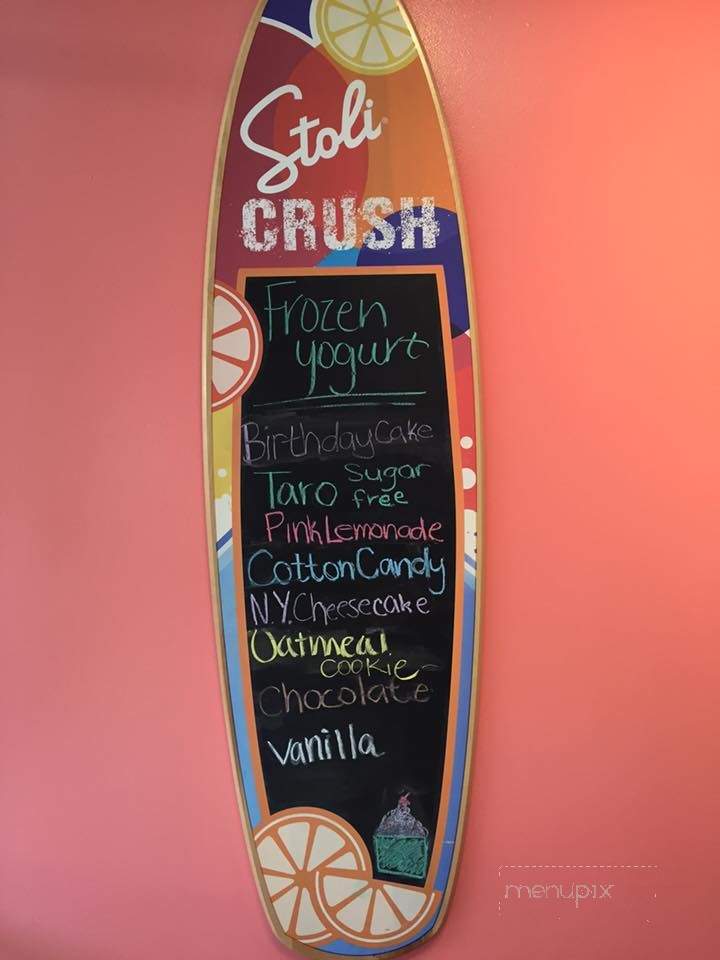 Stoli
CRUSH
Frozen
yogurt
Birthday Cake
Taro Sugar free
Pink Lemonade
Cotton Candy
N.Y. Cheesecake
Oatmeal
cookie
Chocolate
Vanilla
menupix